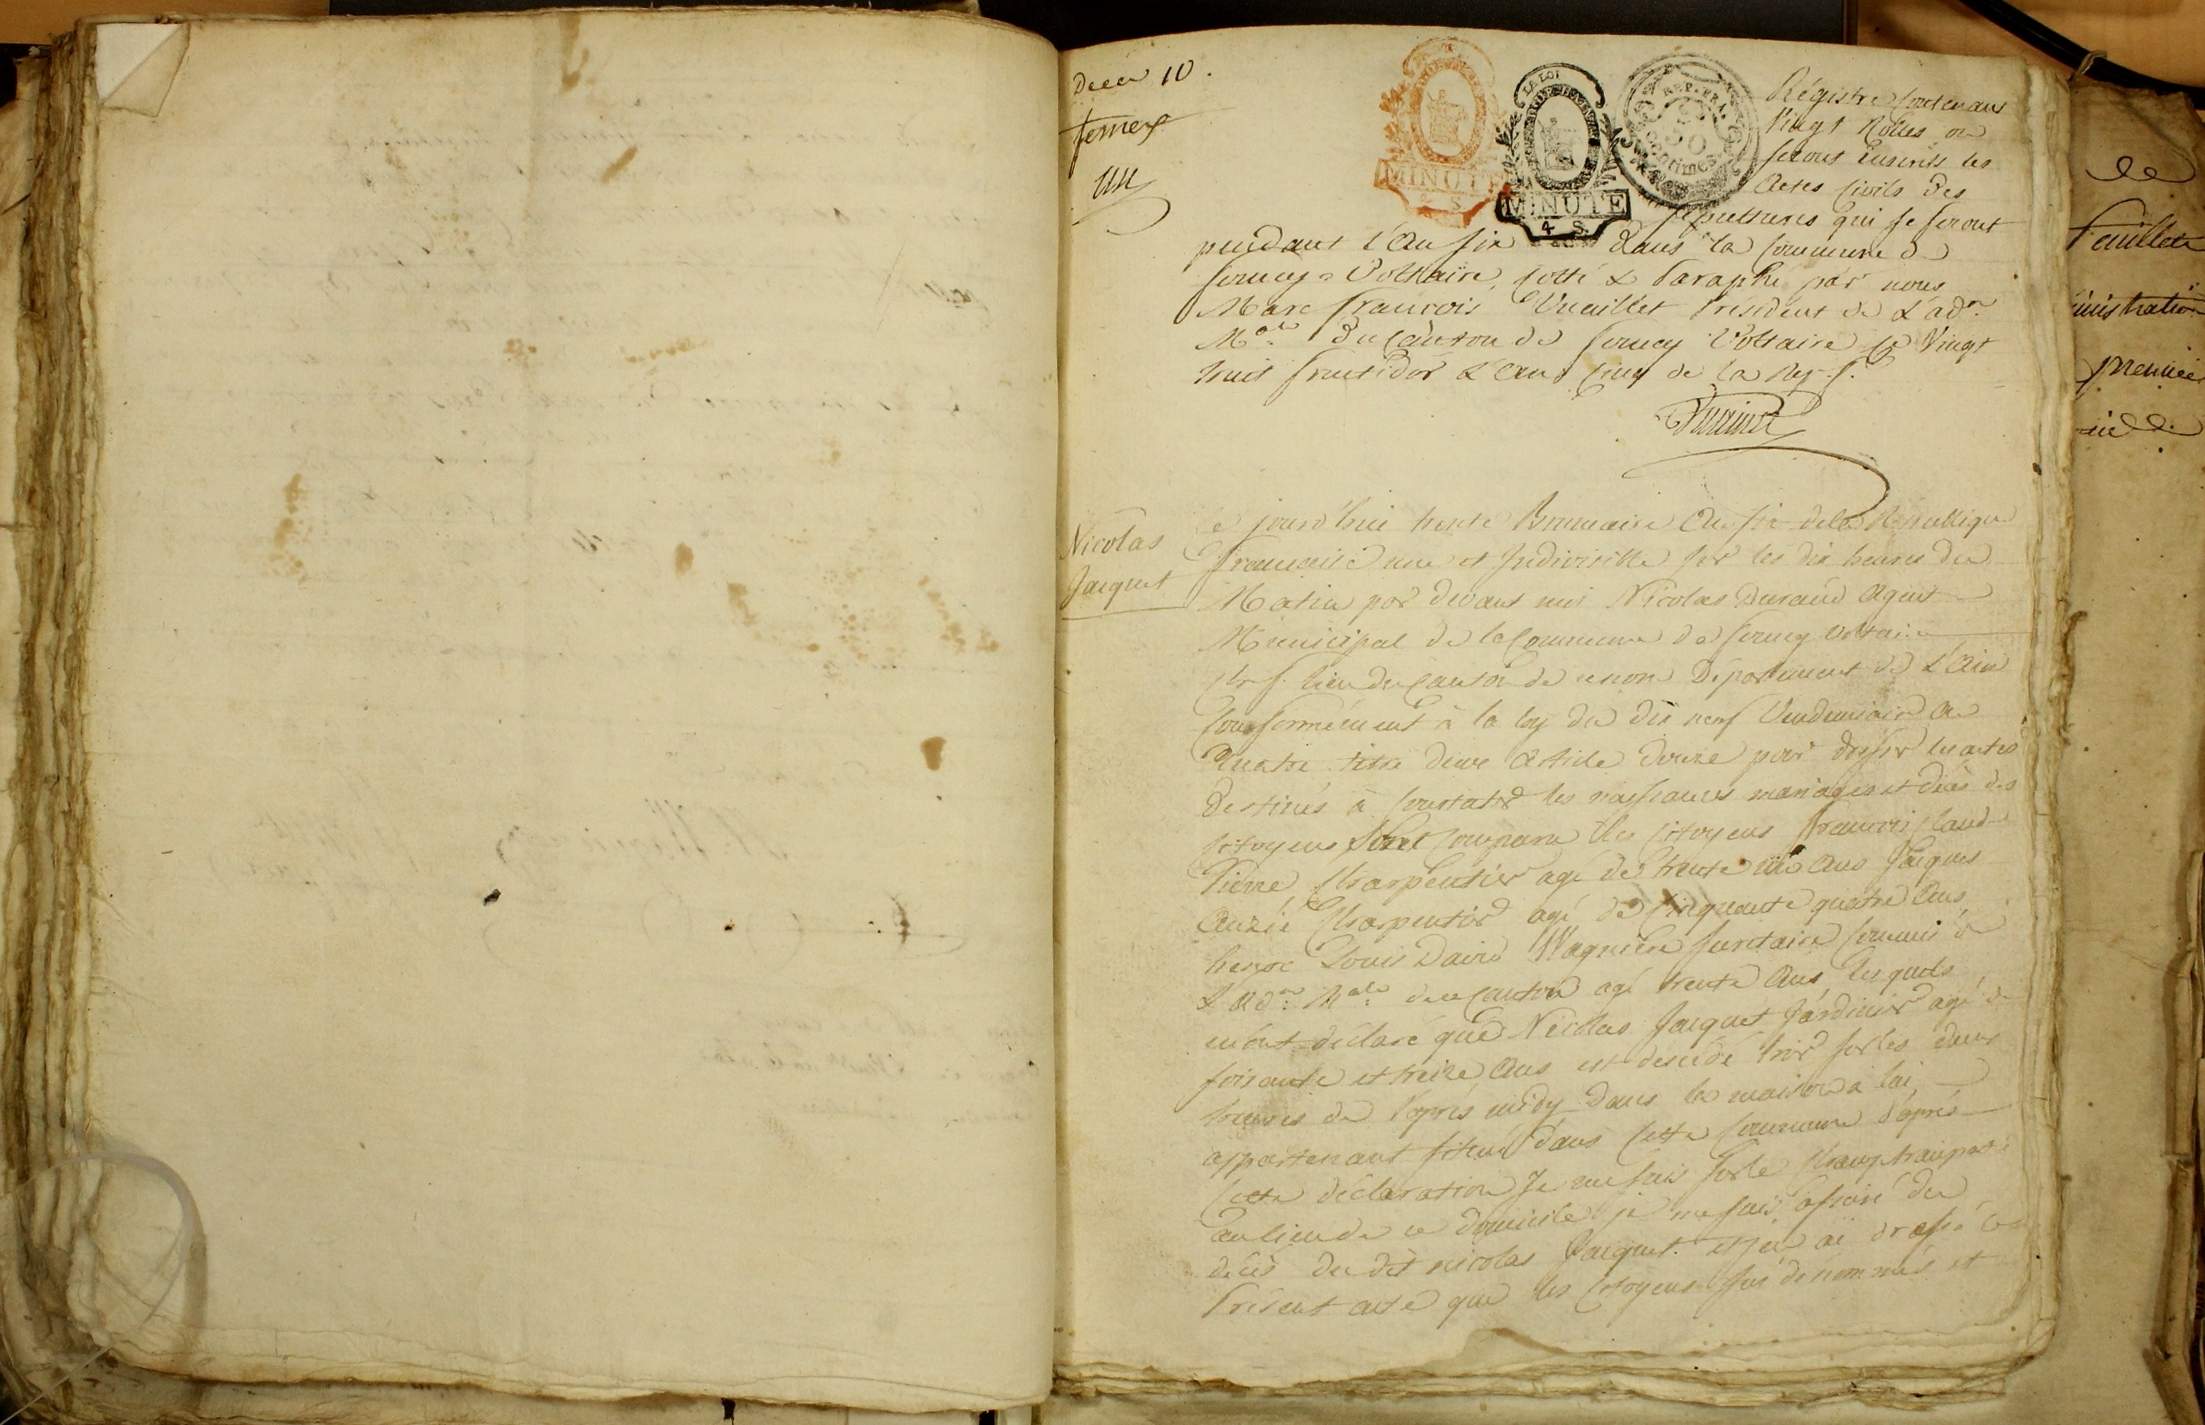 Deces 10.
fernex
un
LA LOI
MINUTE
MINUTE
4 S.
REP. FRA.
50
centimes
Régistre contenans
Vingt Rolles ou
seront Inscrits les
Actes Civils des
sepultures qui se feront
pendant l'An six dans la Commune de
ferney=Voltaire, Cotté & Paraphé par nous
Marc françois Vuaillet Président de L'adon
Male du Canton de ferney Voltaire le Vingt
huit fructidor L'an Cinq de la Rep. f.
Nicolas
Jacquet
Ce jourd'hui trente Brumaire An six de la République
française une et Indivisible sur les dix heures du
Matin par devant moi Nicolas Durand Agent
Municipal de la Commune de ferney Voltaire
chef lieu du Canton de ce nom Département de L'Ain
Conformément à la loy du dix neuf Vendemiaire An
Quatre titre deux Article douze pour dresser les actes
destinés à Constater les naissances mariages et décès des
citoyens sont comparu les citoyens françois Claude
Pierre Charpentier agé de trente ans Jacques
Charpentier agé de Cinquante quatre Ans
Louis David Wagnière Secretaire Commis à
L'Adon Male de ce Canton agé trente Ans, lesquels
m'ont déclaré que Nicolas Jacquet Jardinier agé de
soixante et treize Ans est decedé hier sur les deux
heures de l'après midy dans la maison à lui
appartenant située dans cette Commune d'après
cette déclaration Je me suis sur le champ transporté
au lieu de ce domicile je me suis assuré du
décès du dit nicolas Jacquet. et j'en ai dressé le
Présent acte que les Citoyens sus denommés et
de
feuillets
ministration
premier